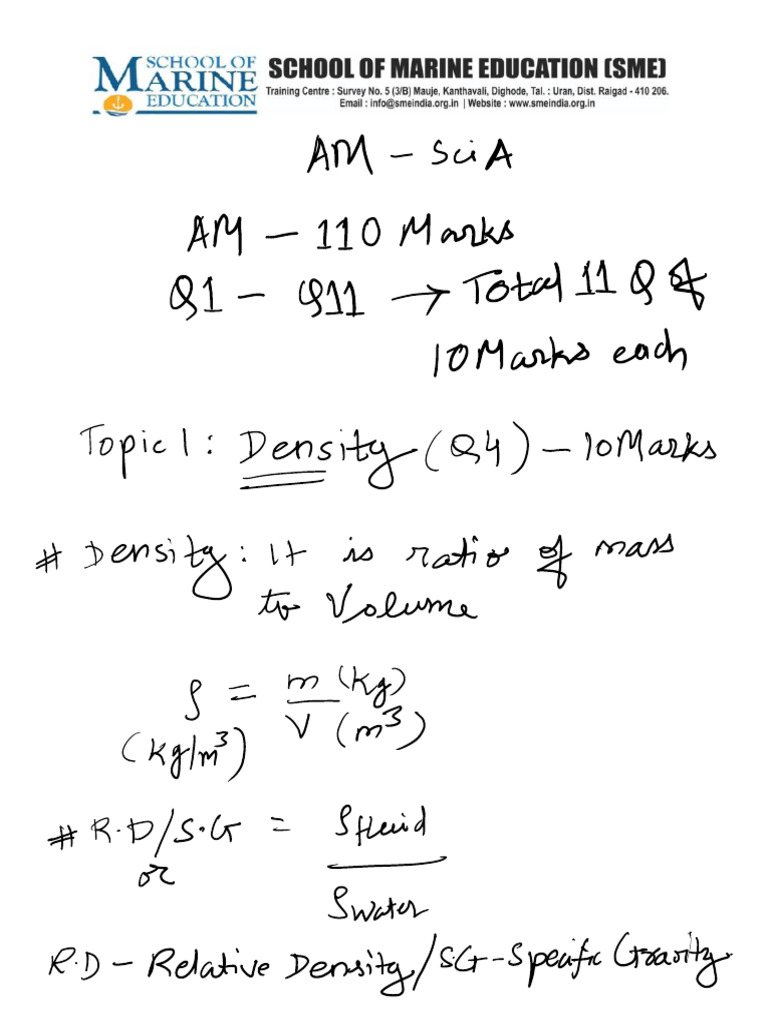 SCHOOL OF
MARINE
EDUCATION
SCHOOL OF MARINE EDUCATION (SME)
Training Centre : Survey No. 5 (3/B) Mauje, Kanthavali, Dighode, Tal. : Uran, Dist. Raigad - 410 206.
Email : info@smeindia.org.in | Website : www.smeindia.org.in
AM - Sci A
AM - 110 Marks
Q1 - Q11 → Total 11 Q of
10 Marks each
Topic 1 : Density (Q4) - 10 Marks
# Density : It is ratio of mass
to Volume
ρ = m (kg)
V (m³)
(kg/m³)
# R.D/S.G = ρfluid
or
ρwater
R.D - Relative Density/SG - Specific Gravity